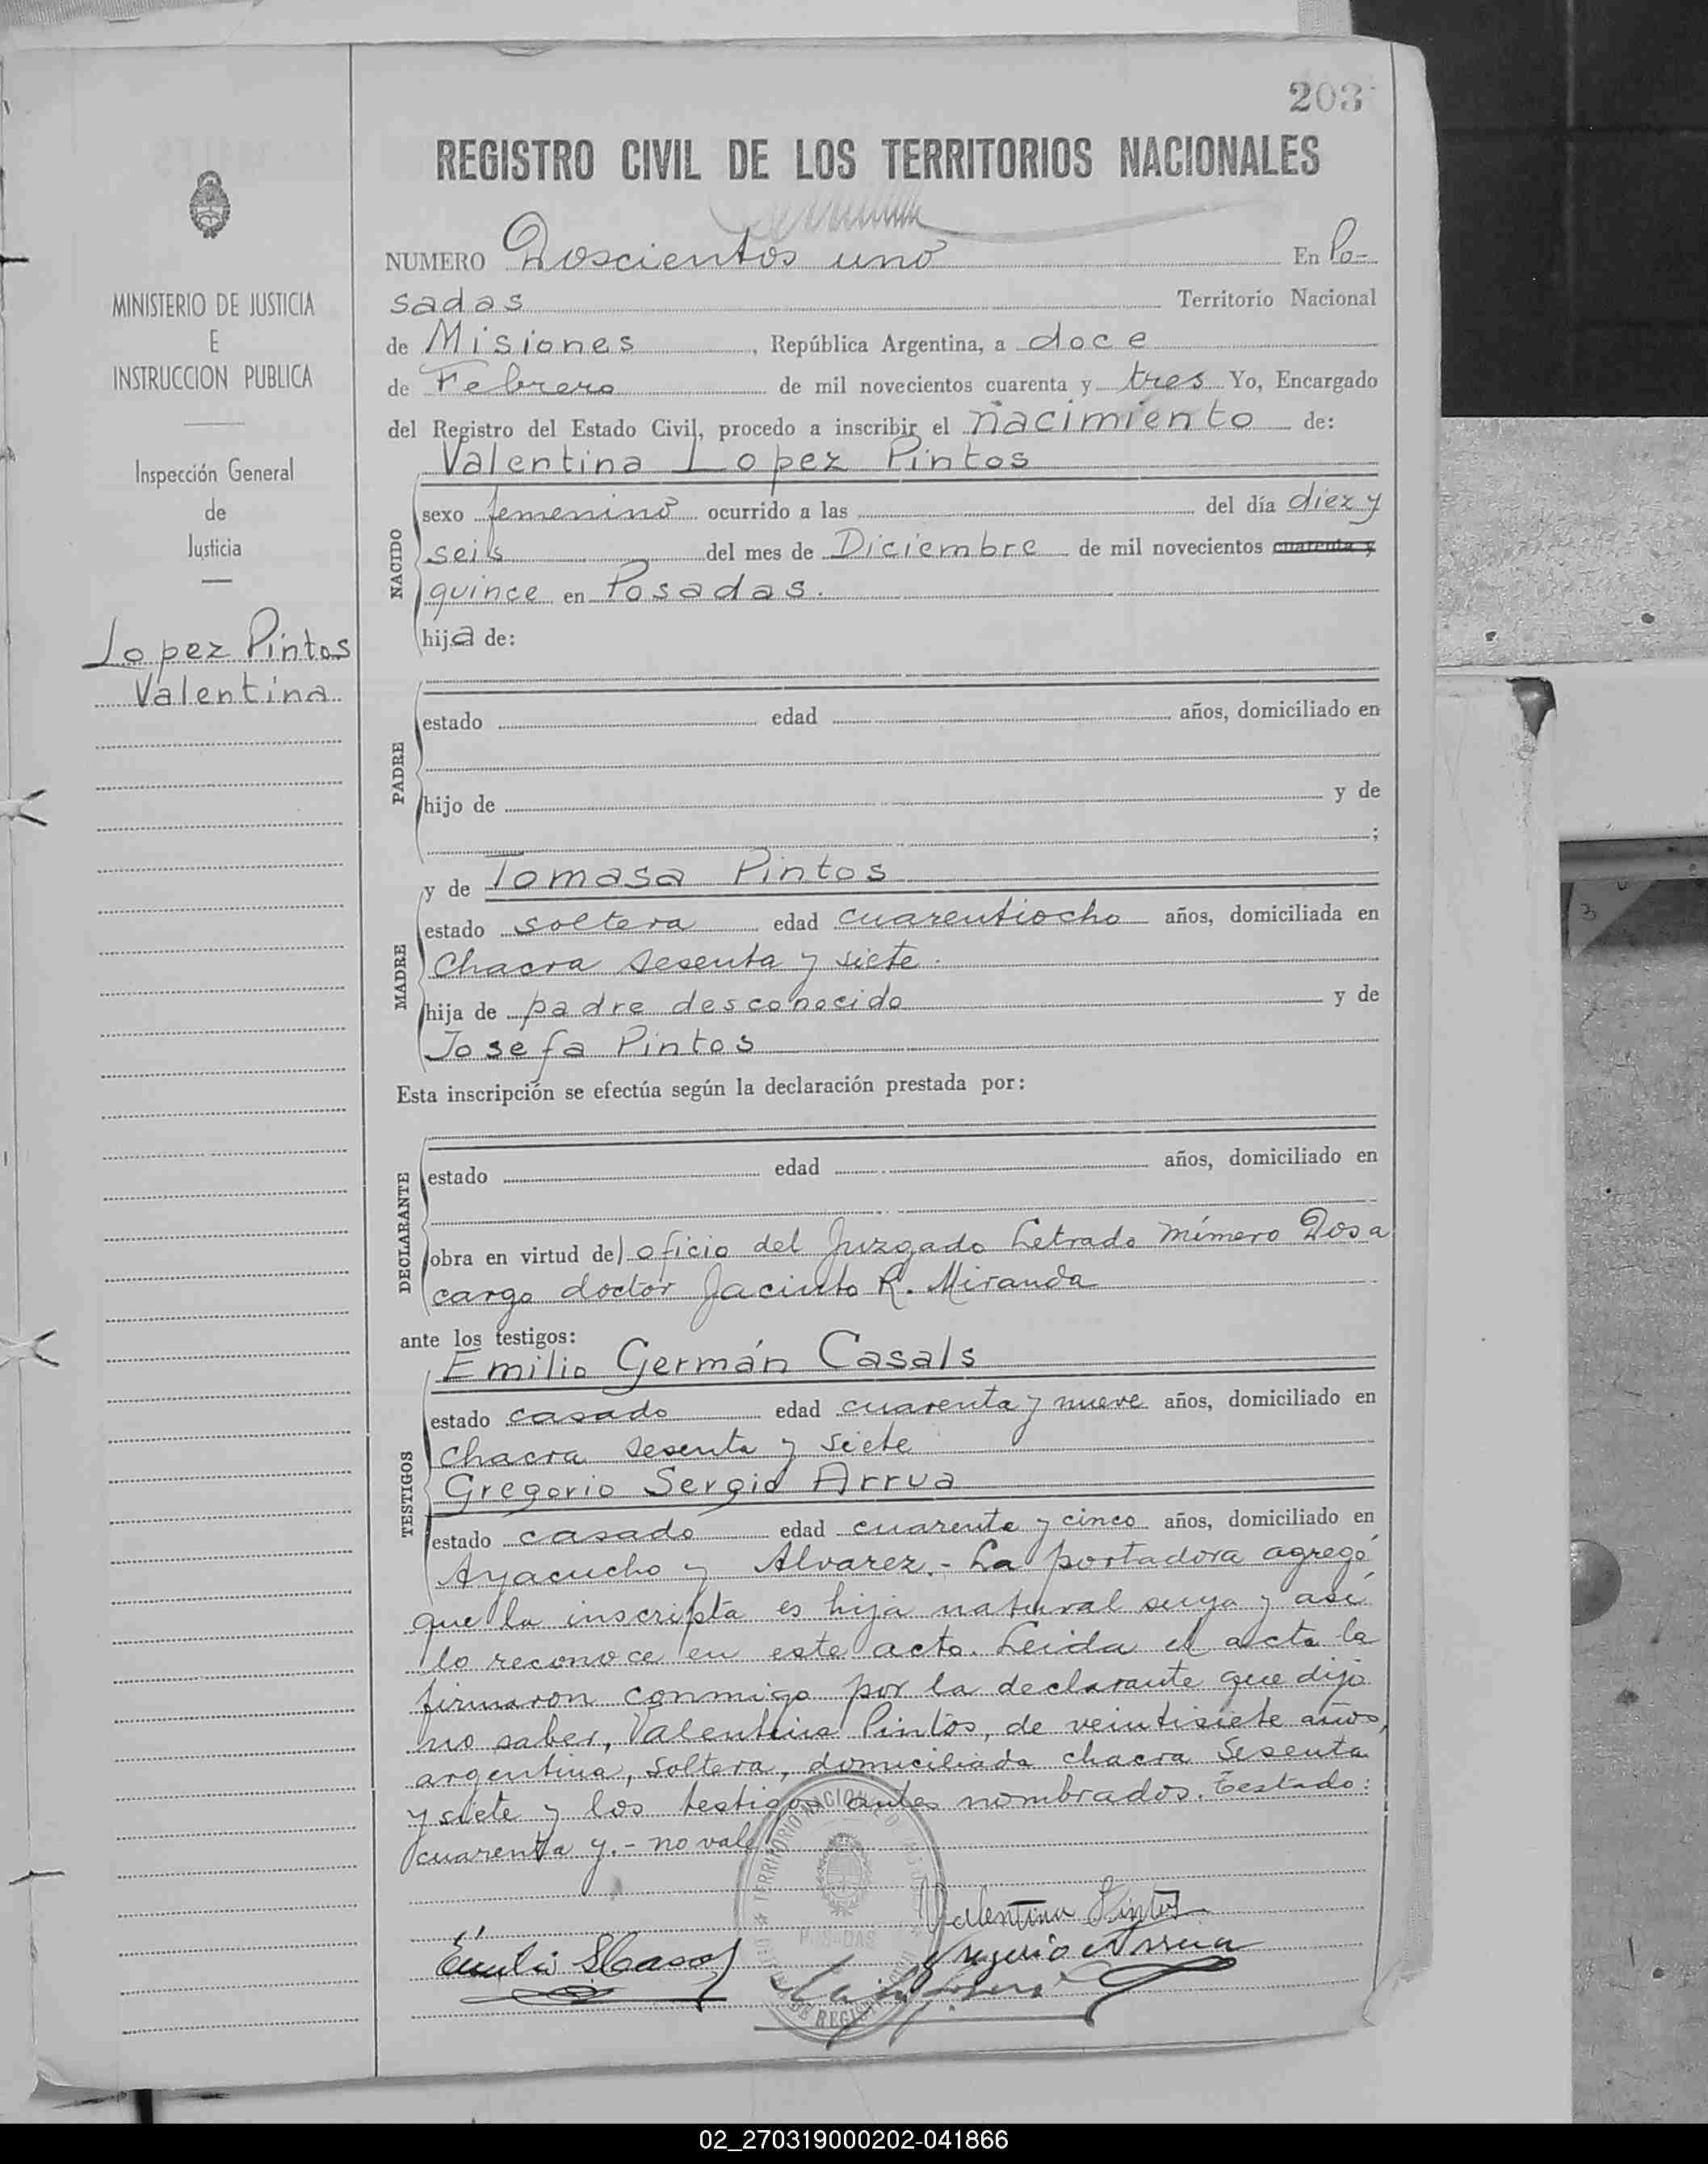 203
REGISTRO CIVIL DE LOS TERRITORIOS NACIONALES
MINISTERIO DE JUSTICIA
E
INSTRUCCION PUBLICA
Inspección General
de
Justicia
Lopez Pintos
Valentina
NUMERO Doscientos uno En Po-
sadas Territorio Nacional
de Misiones, República Argentina, a doce
de Febrero de mil novecientos cuarenta y tres Yo, Encargado
del Registro del Estado Civil, procedo a inscribir el nacimiento de:
Valentina Lopez Pintos
NACIDO
sexo femenino ocurrido a las del día diez y
seis del mes de Diciembre de mil novecientos cuarenta y
quince en Posadas.
hija de:
PADRE
estado edad años, domiciliado en
hijo de y de
;
y de Tomasa Pintos
MADRE
estado soltera edad cuarentiocho años, domiciliada en
Chacra sesenta y siete.
hija de padre desconocido y de
Josefa Pintos
Esta inscripción se efectúa según la declaración prestada por:
DECLARANTE
estado edad años, domiciliado en
obra en virtud del oficio del Juzgado Letrado número Dos a
cargo doctor Jacinto R. Miranda
ante los testigos:
Emilio Germán Casals
TESTIGOS
estado casado edad cuarenta y nueve años, domiciliado en
Chacra sesenta y siete
Gregorio Sergio Arrua
estado casado edad cuarenta y cinco años, domiciliado en
Ayacucho y Alvarez.- La portadora agregó
que la inscripta es hija natural suya y así
lo reconoce en este acto. Leida el acta la
firmaron conmigo por la declarante que dijo
no saber, Valentina Pintos, de veintisiete años,
argentina, soltera, domiciliada chacra sesenta
y siete y los testigos antes nombrados. Testado:
cuarenta y.- no vale
TERRITORIO NACIONAL
POSADAS
Valentina Pintos
Gregorio Arrua
02_270319000202-041866